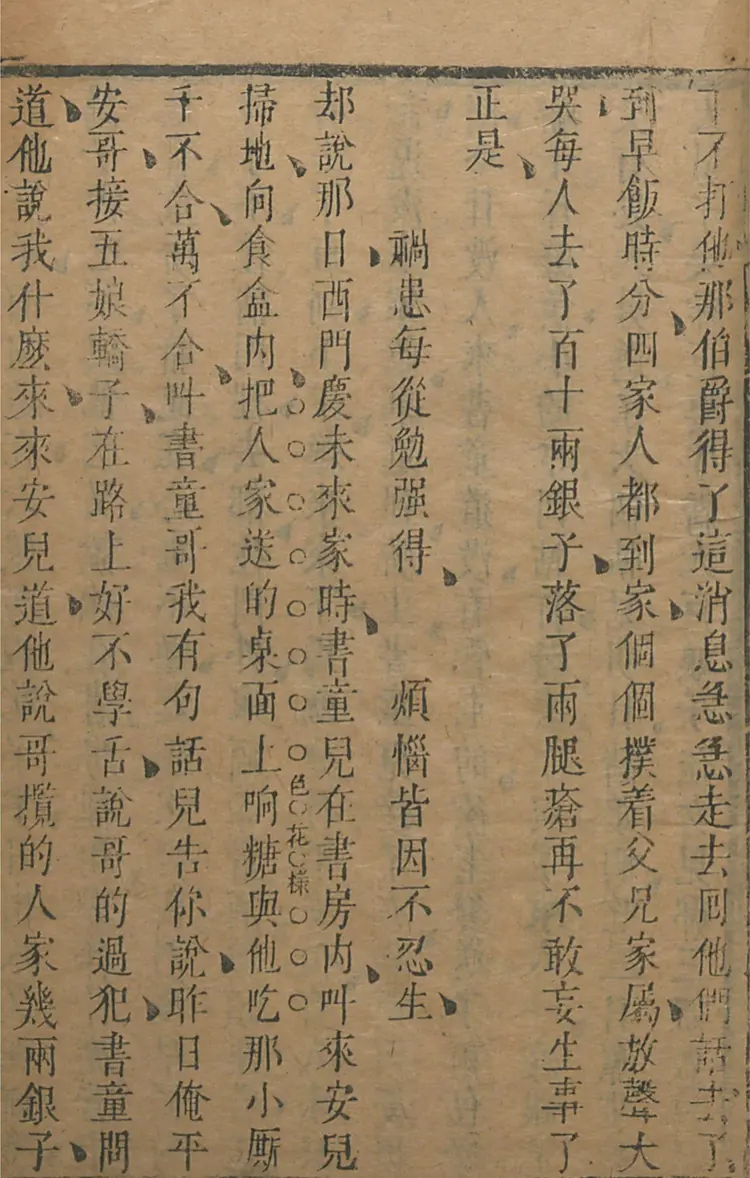 了不打他那伯爵得了這消息急急走去囘他們話去了
到早飯時分四家人都到家個個撲着父兄家屬放聲大
哭每人去了百十兩銀子落了兩腿瘡再不敢妄生事了
正是
禍患每從勉强得　煩惱皆因不忍生
却說那日西門慶未來家時書童兒在書房内叫來安兒
色花樣
掃地向食盒内把人家送的桌面上响糖與他吃那小厮
千不合萬不合叫書童哥我有句話兒告你說昨日俺平
安哥接五娘轎子在路上好不學舌說哥的過犯書童問
道他說我什麽來來安兒道他說哥攬的人家幾兩銀子